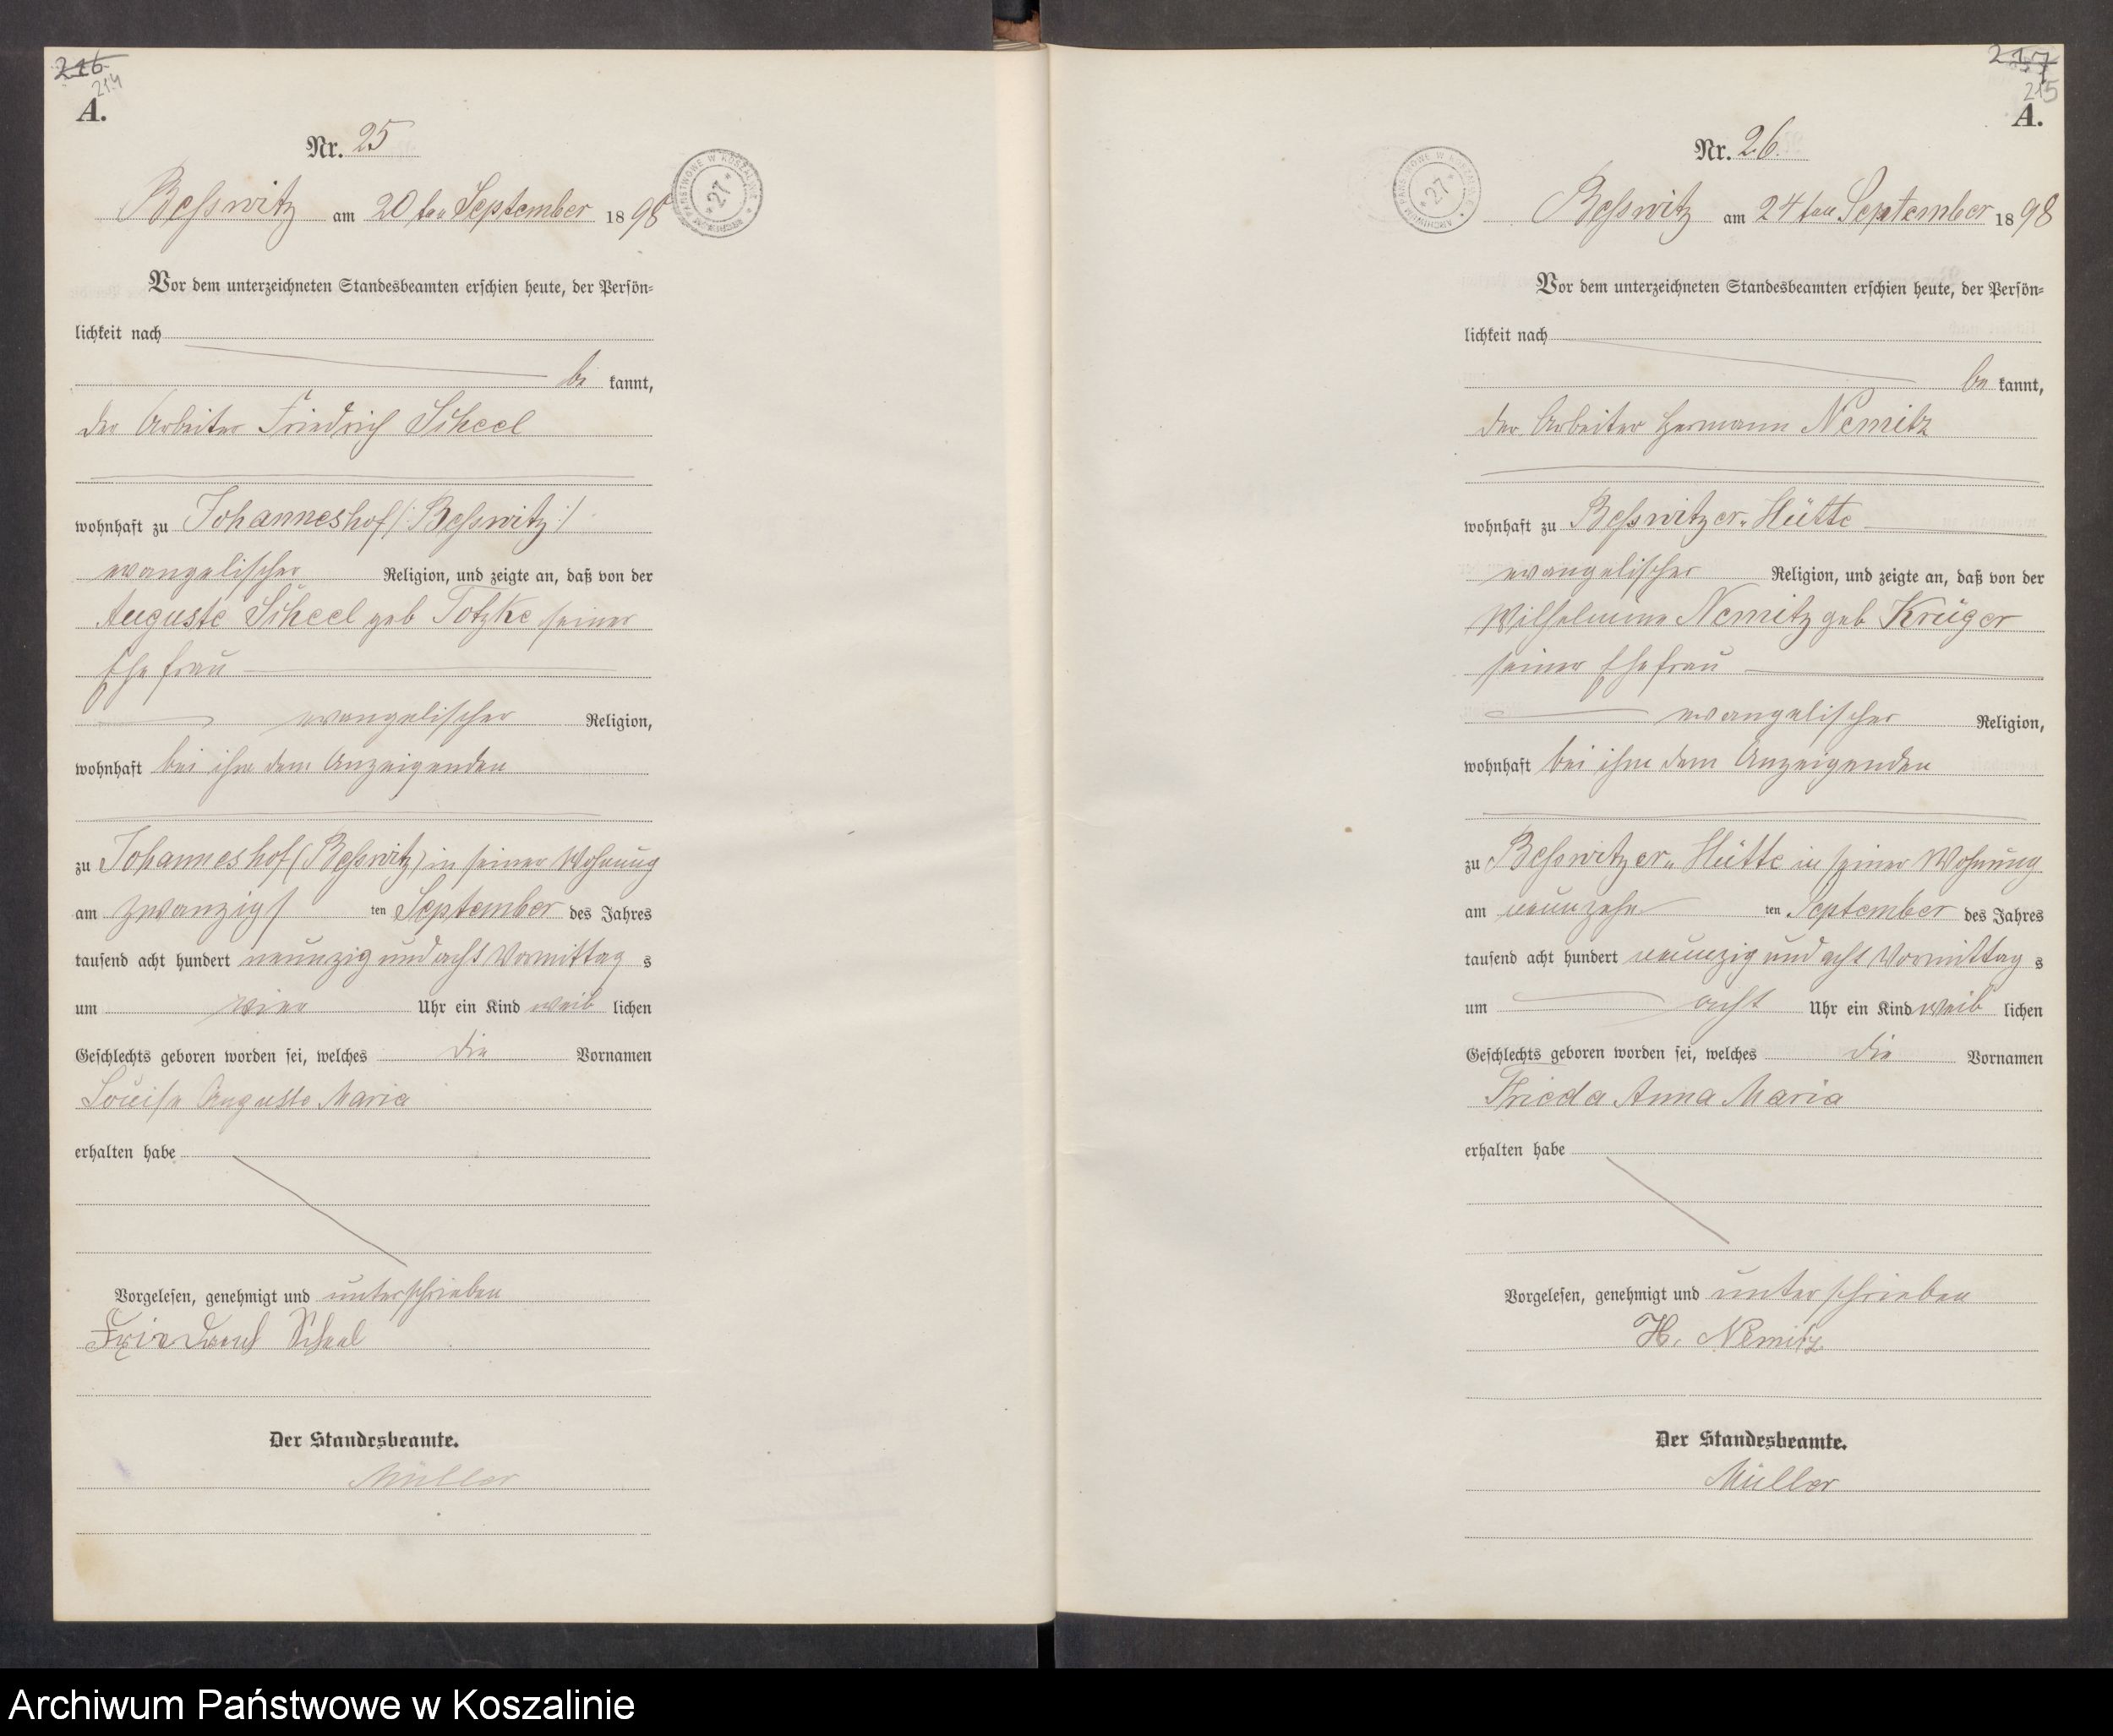 216
214
A.
Nr. 25
Beßwitz am 20ten September 1898
Vor dem unterzeichneten Standesbeamten erschien heute, der Persön-
lichkeit nach
be kannt,
der Arbeiter Friedrich Scheel
wohnhaft zu Johanneshof /: Beßwitz :/
evangelischer Religion, und zeigte an, daß von der
Auguste Scheel geb Totzke seiner
Ehefrau
evangelischer Religion,
wohnhaft bei ihm dem Anzeigenden
zu Johanneshof (Beßwitz) in seiner Wohnung
am zwanzigs ten September des Jahres
tausend acht hundert neunzig und acht Vormittag s
um vier Uhr ein Kind weib lichen
Geschlechts geboren worden sei, welches die Vornamen
Louise Auguste Maria
erhalten habe
Vorgelesen, genehmigt und unterschrieben
Friedrich Scheel
Der Standesbeamte.
Müller
ARCHIWUM PAŃSTWOWE W KOSZALINIE * 27 *
217
215
A.
Nr. 26.
Beßwitz am 24ten September 1898
Vor dem unterzeichneten Standesbeamten erschien heute, der Persön-
lichkeit nach
be kannt,
der Arbeiter Hermann Nemitz
wohnhaft zu Beßwitzer-Hütte
evangelischer Religion, und zeigte an, daß von der
Wilhelmine Nemitz geb Krüger
seiner Ehefrau
evangelischer Religion,
wohnhaft bei ihm dem Anzeigenden
zu Beßwitzer-Hütte in seiner Wohnung
am neunzehn ten September des Jahres
tausend acht hundert neunzig und acht Vormittag s
um acht Uhr ein Kind weib lichen
Geschlechts geboren worden sei, welches die Vornamen
Frieda Anna Maria
erhalten habe
Vorgelesen, genehmigt und unterschrieben
H. Nemitz
Der Standesbeamte.
Müller
ARCHIWUM PAŃSTWOWE W KOSZALINIE * 27 *
Archiwum Państwowe w Koszalinie